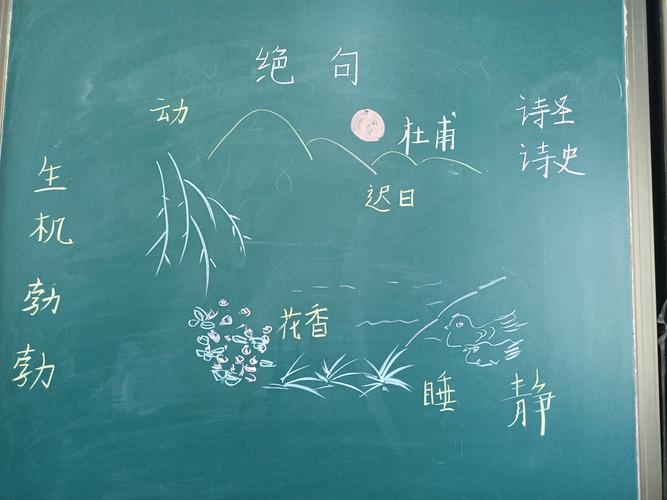 绝句
动
杜甫
诗圣
诗史
迟日
生机勃勃
花香
睡
静